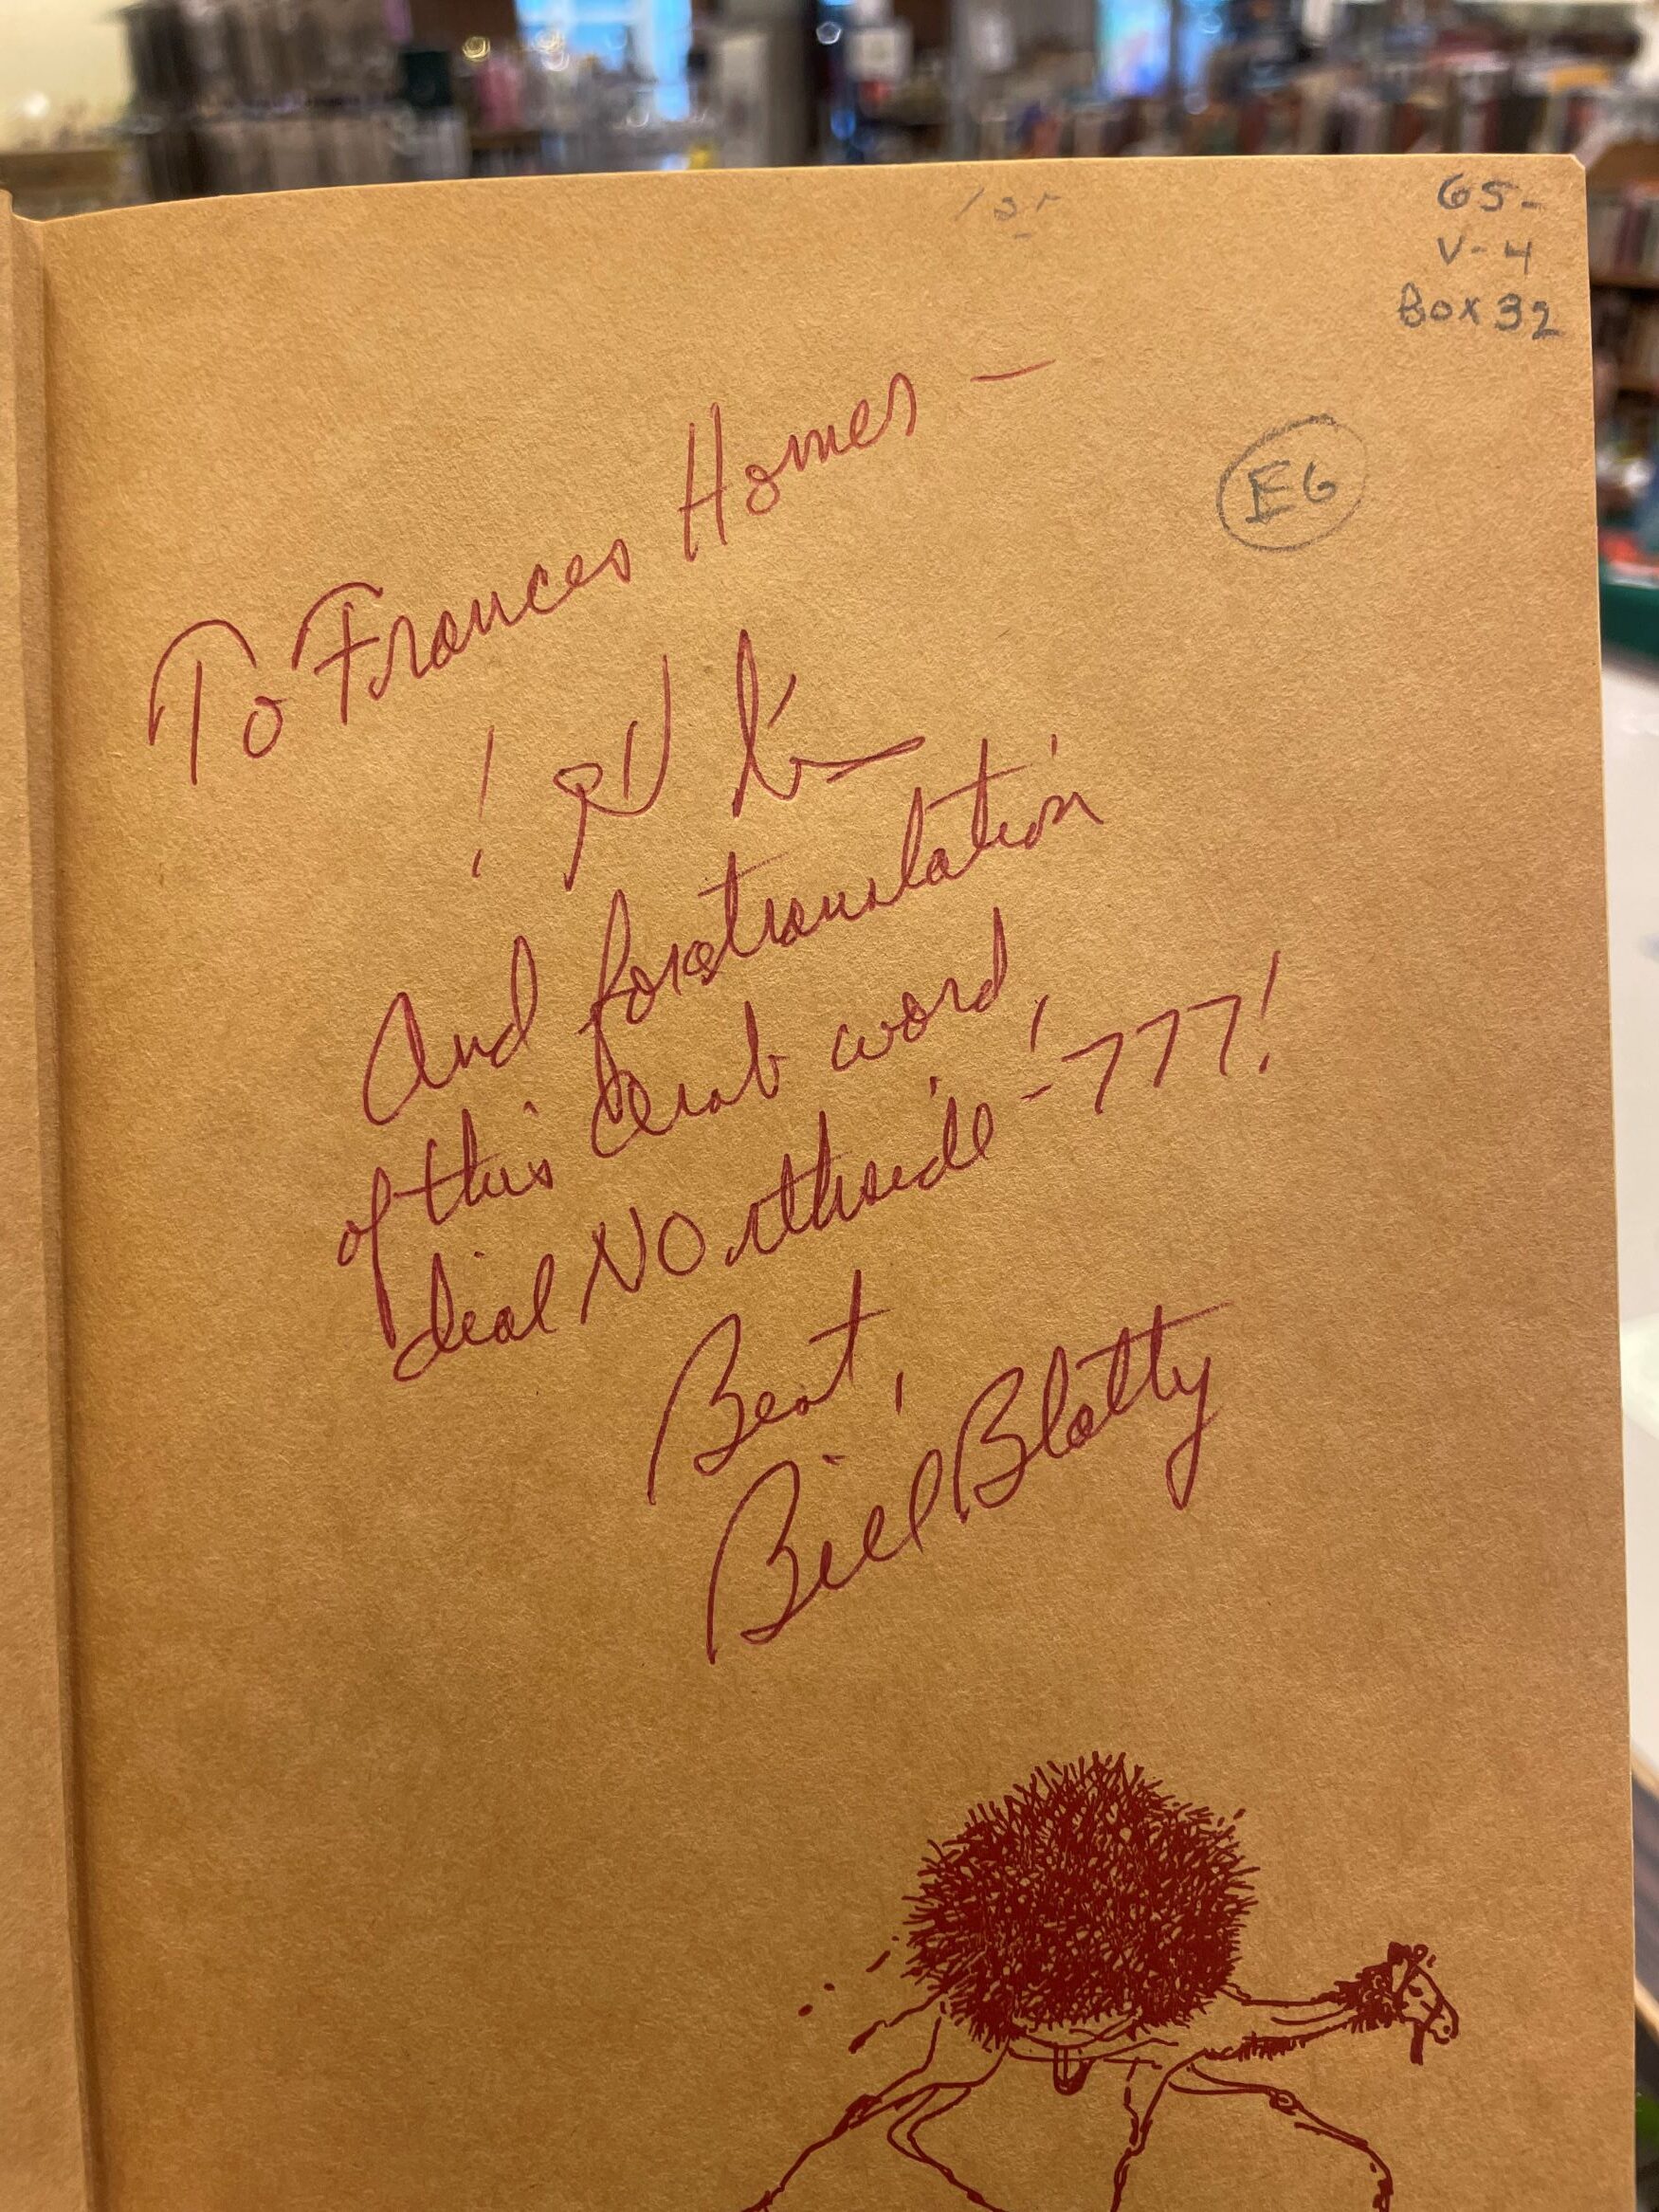 1st
65-
V-4
Box 32
E6
To Frances Homes —
And for translation
of this Arab word,
dial NOrthside-777!
Best,
Bill Blatty